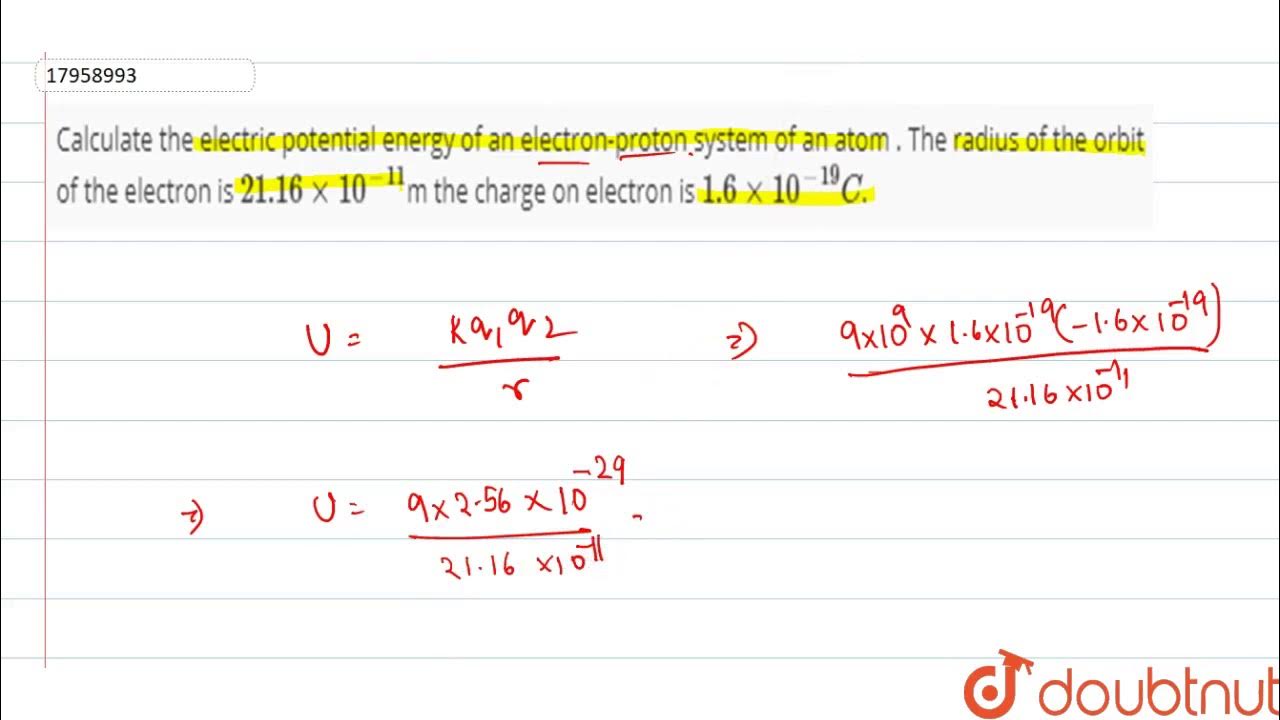 17958993
Calculate the electric potential energy of an electron-proton system of an atom . The radius of the orbit
of the electron is 21.16 × 10⁻¹¹ m the charge on electron is 1.6 × 10⁻¹⁹ C.
U = kq₁q₂ / r ⇒ 9×10⁹ × 1.6×10⁻¹⁹ (-1.6×10⁻¹⁹) / 21.16×10⁻¹¹
⇒ U = 9×2.56 ×10⁻²⁹ / 21.16 ×10⁻¹¹ =
doubtnut